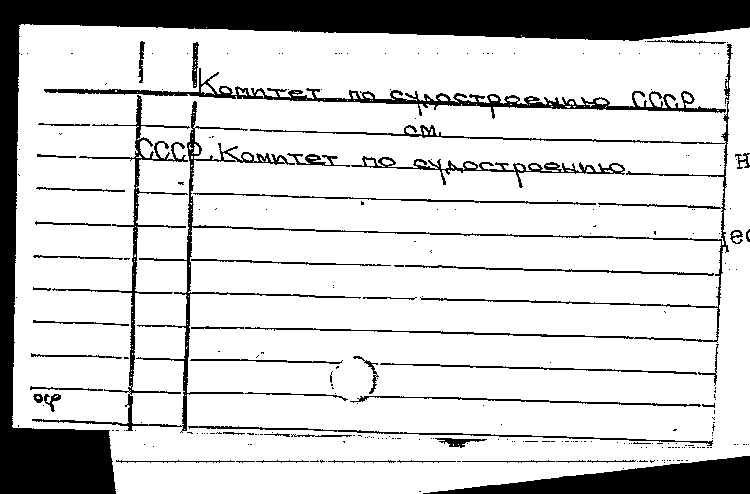 Комитет по судостроению СССР
см.
СССР. Комитет по судостроению.